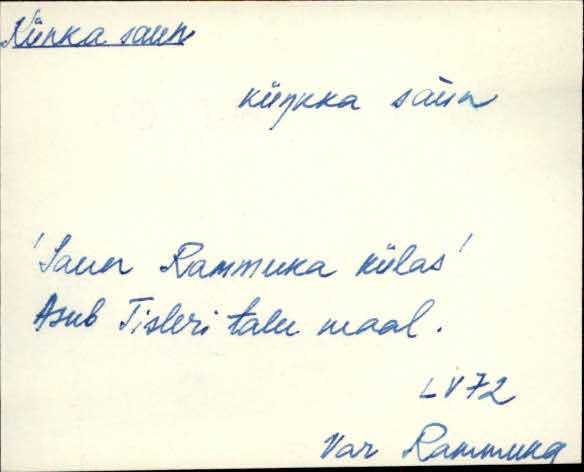 Künka saun
küŋkka saun
'Saun Rammuka külas'
Asub Tisleri talu maal.
LV72
Var Rammuka